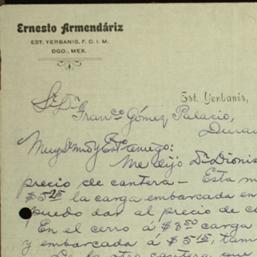 Ernesto Armendáriz
EST. YERBANIS, F. C. I. M.
DGO., MEX.
Est. Yerbanis,
Sr. Dn.
Franco Gómez Palacio,
Duran
Muy Sr. mío y Est. amigo:
Me dijo Dn. Dionis
precio de cantera — Esta m
$5.25 la carga embarcada en
puedo dar al precio de co
En el cerro á $3.50 carga
y embarcada á $5.25, tam